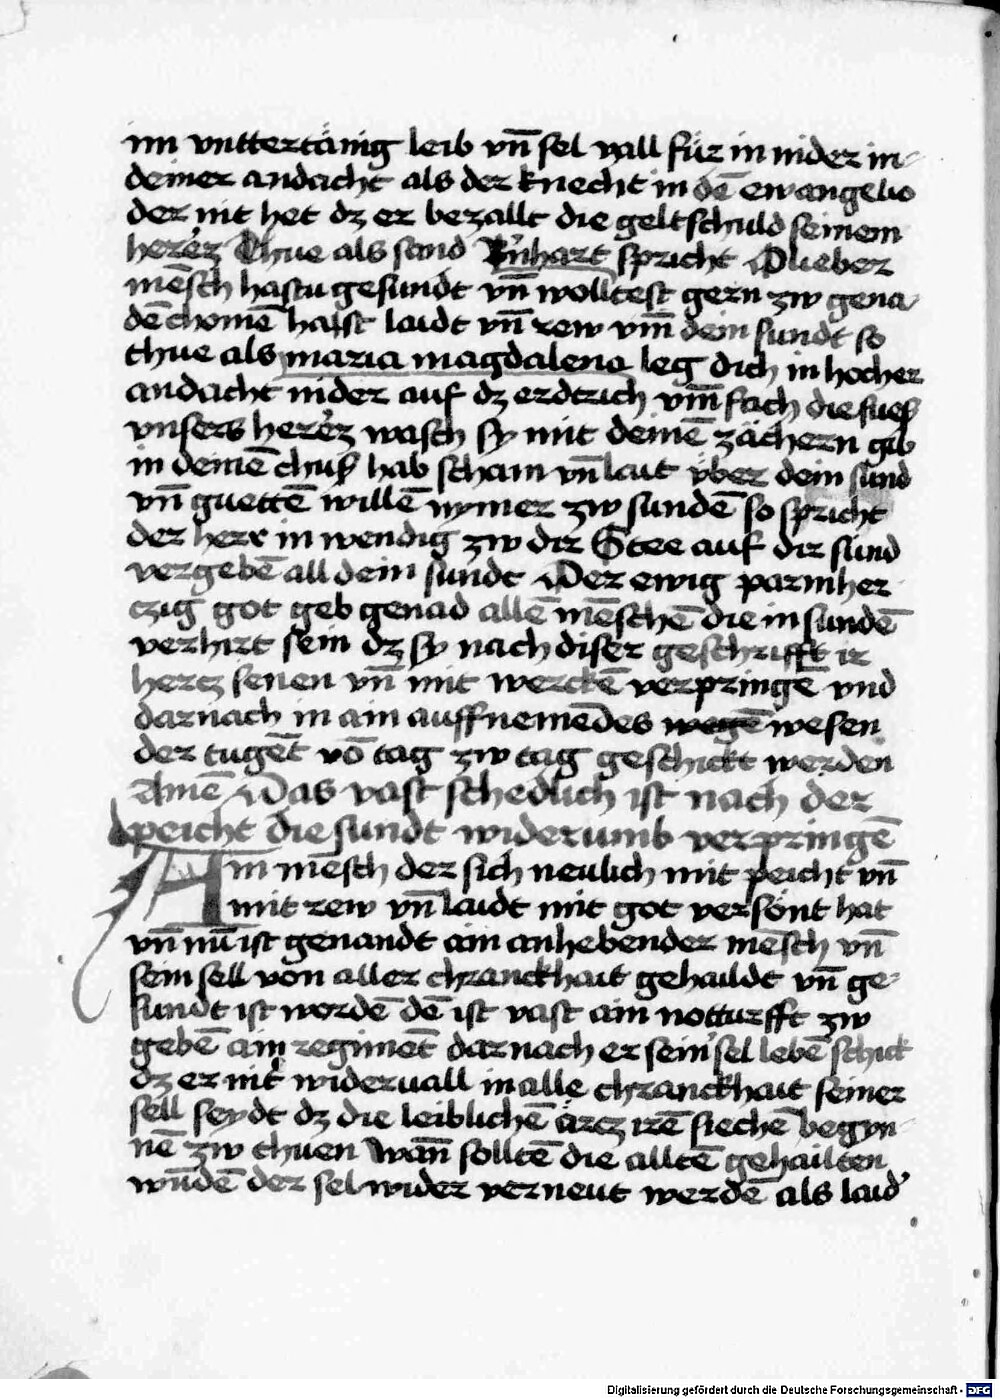 im vnttertänig leib vn̄ sel vall für in nider in
deiner andacht als der knecht in dē ewangelio
der nit het dz er bezallt die geltschuld seinem
herrēz Thue als sand Bn̄hart spricht O lieber
mēsch hastu gesundt vn̄ wolltest gern zw gena
dē chomē hasst laidt vn̄ rew vm̄ dein sundt so
thue als maria magdalena leg dich in hocher
andacht nider auf dz erdtrich vm̄ fach die fueß
vnsers herēz wasch sy mit deinē zächern gib
in deinē chuß hab scham vn̄ laut über dein sünd
vn̄ guettē willē nymer zw sundē so spricht
der herr in wendig zw dir Stee auf dir sünd
vergebē all dein sündt Der ewig parmher
czig got geb genad allē mēschē die in sundē
verhirt sein dz sy nach diser geschrifft ir
hercz senen vn̄ mit werckē verpringē vnd
darnach in ain auffnemēdes wegē wesen
der tugēt vō tag zw tag geschickt werden
Amē Das vast schedlich ist nach der
peicht die sundt widerumb verpringē
Ain mēsch der sich neulich mit peicht vn̄
mit rew vn̄ laidt mit got versönt hat
vn̄ nū ist genandt ain anhebender mēsch vn̄
sein sell von aller chranckhait gehaildt vn̄ ge-
sundt ist wordē dē ist vast ain notturfft zw
gebē ain regimēt darnach er sein sel lebē schick
dz er nit widervall in alle chranckhait seiner
sell seydt dz die leiblichē ärcz irē siechē begyn-
nē zw thuen Wan̄ solltē die alltē gehailten
wūdē der sel wider verneut werdē als laid'
Digitalisierung gefördert durch die Deutsche Forschungsgemeinschaft - DFG